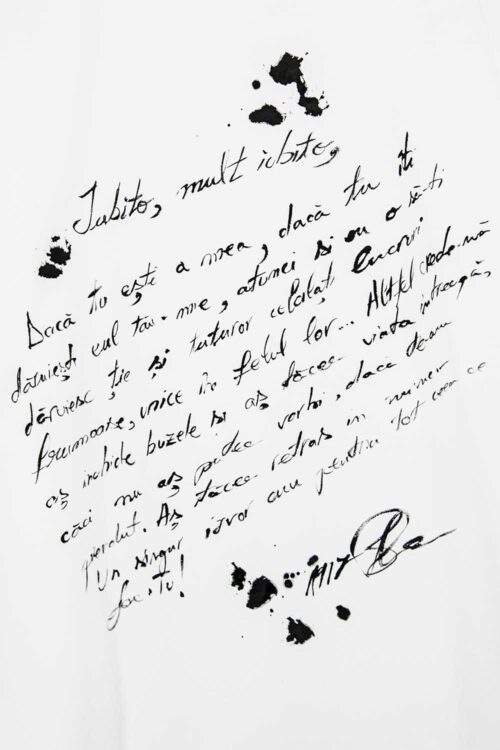 Iubito, mult iubito,
Dacă tu ești a mea, dacă tu îți
dăruiești eul tău mie, atunci și eu o să-ți
dăruiesc ție și tuturor celorlalți lucruri
frumoase, unice în felul lor... Altfel crede-mă
aș închide buzele și aș tăcea viața întreagă,
căci nu aș putea vorbi, dacă te-am
pierdut. Aș tăcea retras în
Un singur izvor am pentru tot ceea ce
fac: tu!